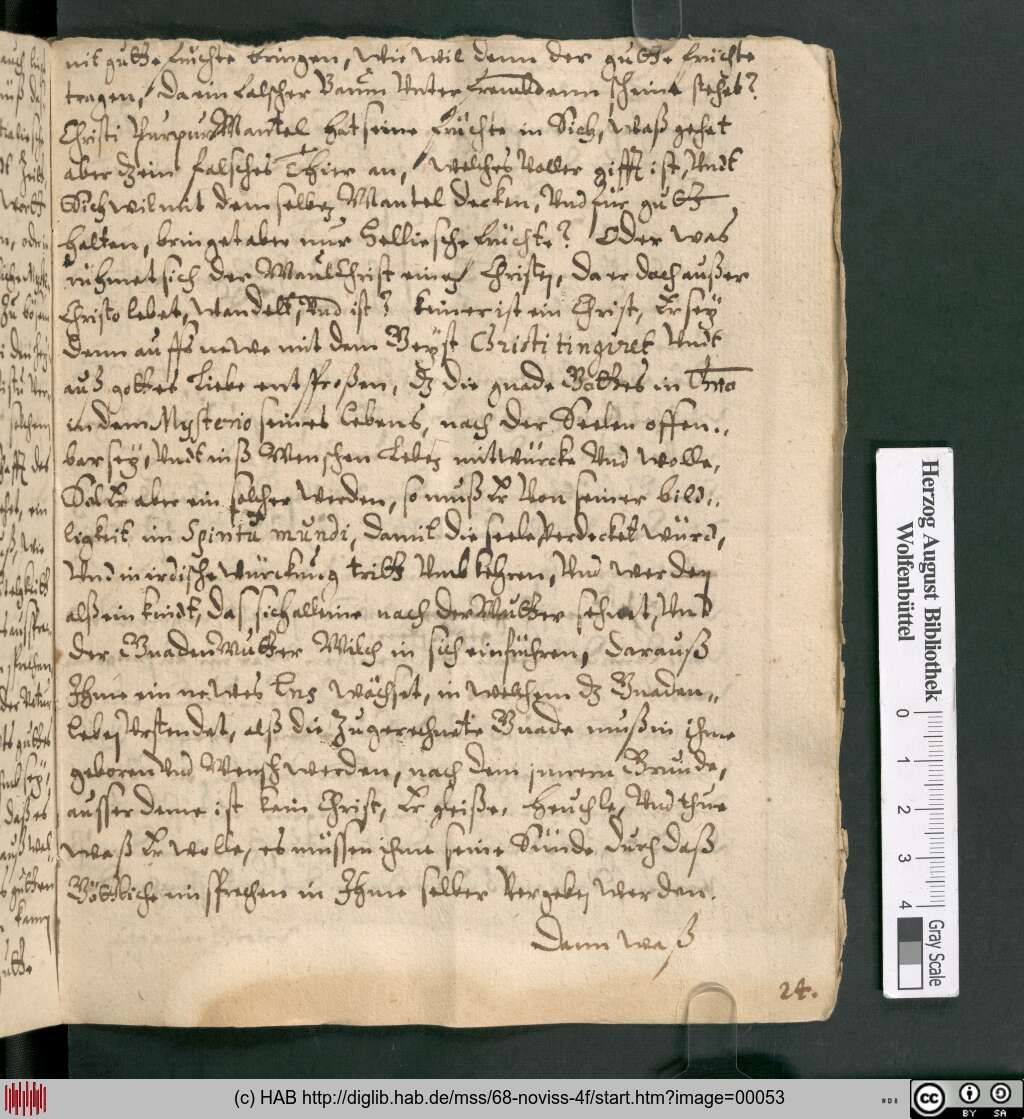 nit gutte früchte bringen, wie wil denn der gutte früchte
tragen, da ein falscher Baum Unter frembdem scheine stehet?
Christi PurpurMantel hat seine früchte in Sich, waß gehet
aber dz ein falsches Thier an, welches Voller gifft ist, Undt
Sich wil mit demselben Mantel decken, Und für gutt
halten, bringet aber nur Hellische früchte? Oder was
rühmet sich der MaulChrist einen Christen, da er doch außer
Christo lebet, wandelt, Und ist? keiner ist ein Christ, Er sey
denn auffs newe mit dem Geÿst Christi tingiret Undt
auß gottes Liebe entsproßen, dz die gnade Gottes in Chro
in dem Mysterio seines Lebens, nach der Seelen offen„
bar seÿ, Undt inß Menschen Leben mitwürcke Und wolle,
Sol Er aber ein solcher werden, so muß Er Von seiner bild„
ligkeit im Spiritu mundi, damit die seele Verdecket würd,
Und in irdische würckung tritt Umbkehren, Und werden
alß ein kindt, das sich alleine nach der Mutter sehnet, Und
der GnadenMutter Milch in sich einführen, darauß
Ihme ein newes Ens wächset, in welchem dz Gnaden„
leben Urstendet, alß die Zugerechnete Gnade muß in ihme
geboren Und Mensch werden, nach dem innern Grunde,
ausser deme ist kein Christ, Er gleiße, heuchle, Und thue
waß Er wolle, es müssen ihme seine Sünde durch daß
Göttliche einsprechen in Ihme selber Vergeben werden.
Denn waß
24.
Herzog August Bibliothek
Wolfenbüttel
0 1 2 3 4
Gray Scale
(c) HAB http://diglib.hab.de/mss/68-noviss-4f/start.htm?image=00053
cc BY SA